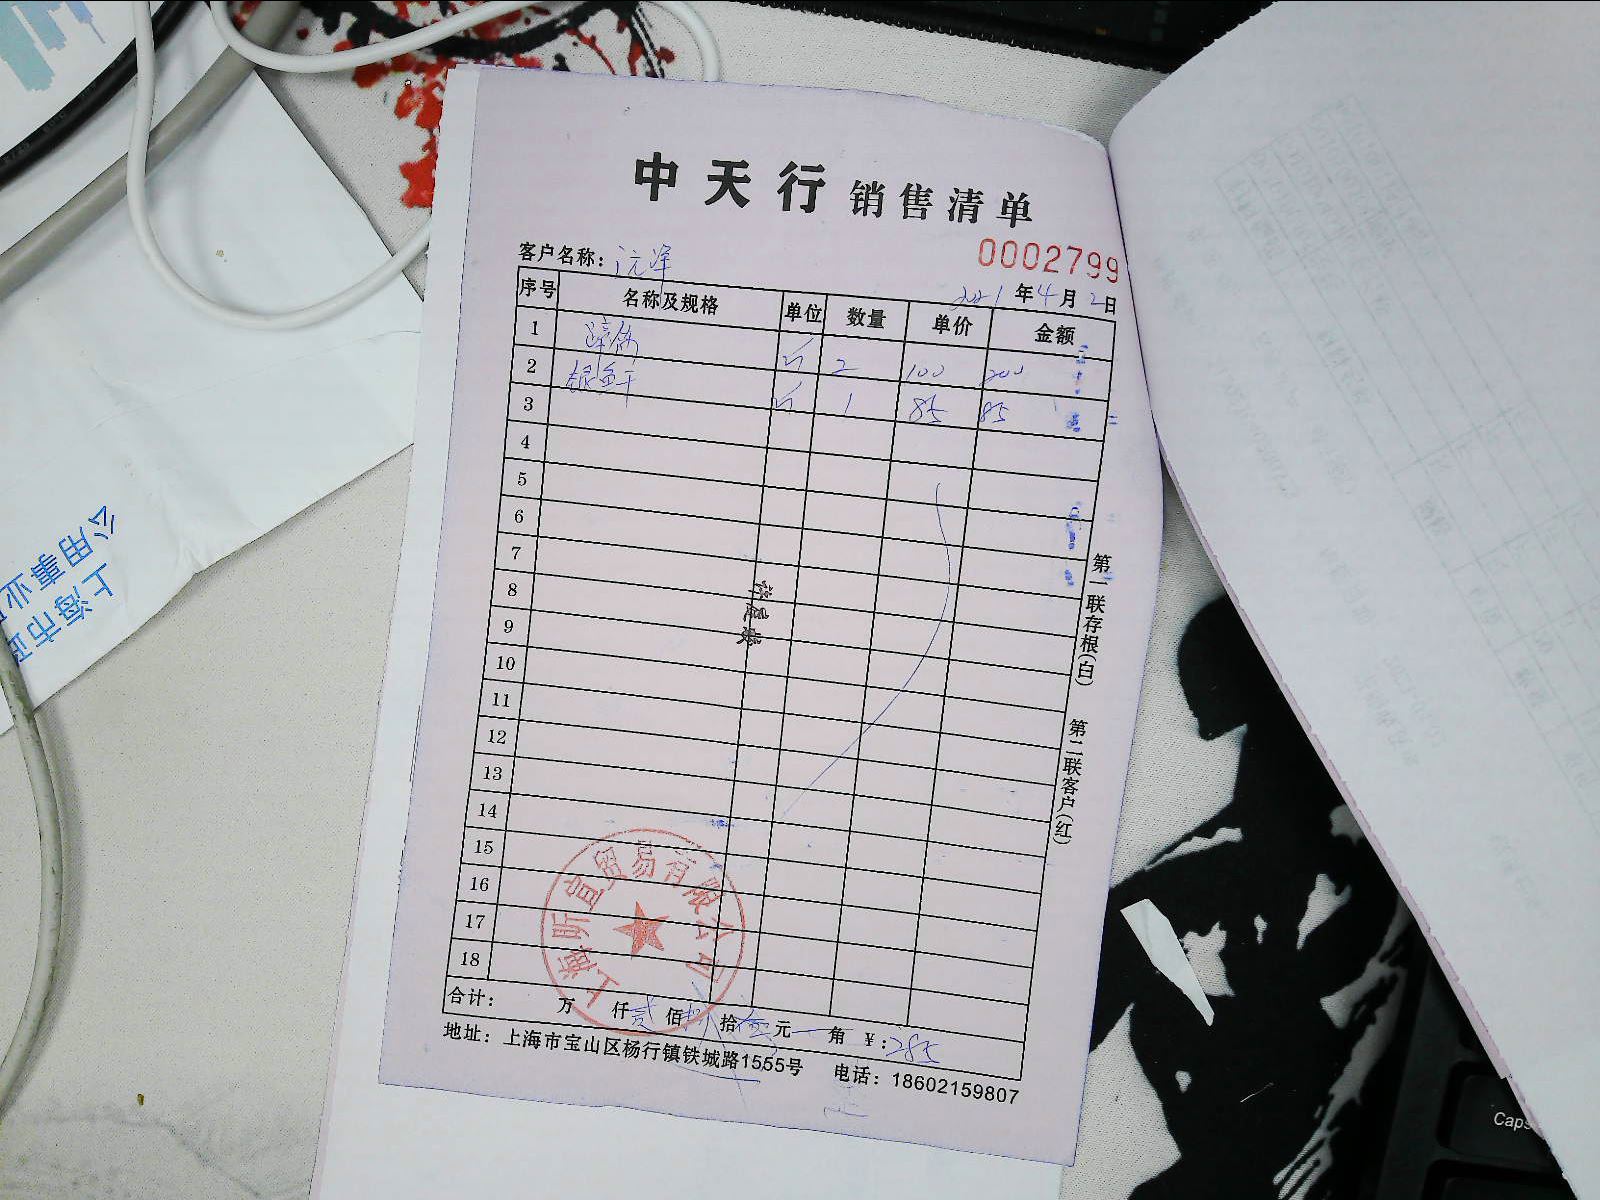 中天行 销售清单
0002799
客户名称：沅洋
2021年4月2日
序号 名称及规格 单位 数量 单价 金额
1
斤 2 100 200
2 银鱼干 斤 1 85 85
3
4
5
6
7
8
9
10
11
12
13
14
15
16
17
18
上海昕宜贸易有限公司
合计： 万 仟贰佰捌拾伍元 角 ￥：285
地址：上海市宝山区杨行镇铁城路1555号 电话：18602159807
第一联存根(白) 第二联客户(红)
上海市
公用事业
Caps